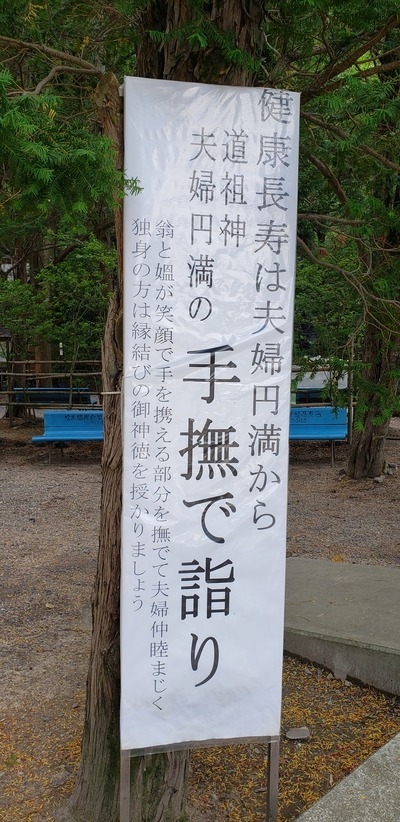 健康長寿は夫婦円満から
道祖神
夫婦円満の
手撫で詣り
翁と媼が笑顔で手を携える部分を撫でて夫婦仲睦まじく
独身の方は縁結びの御神徳を授かりましょう